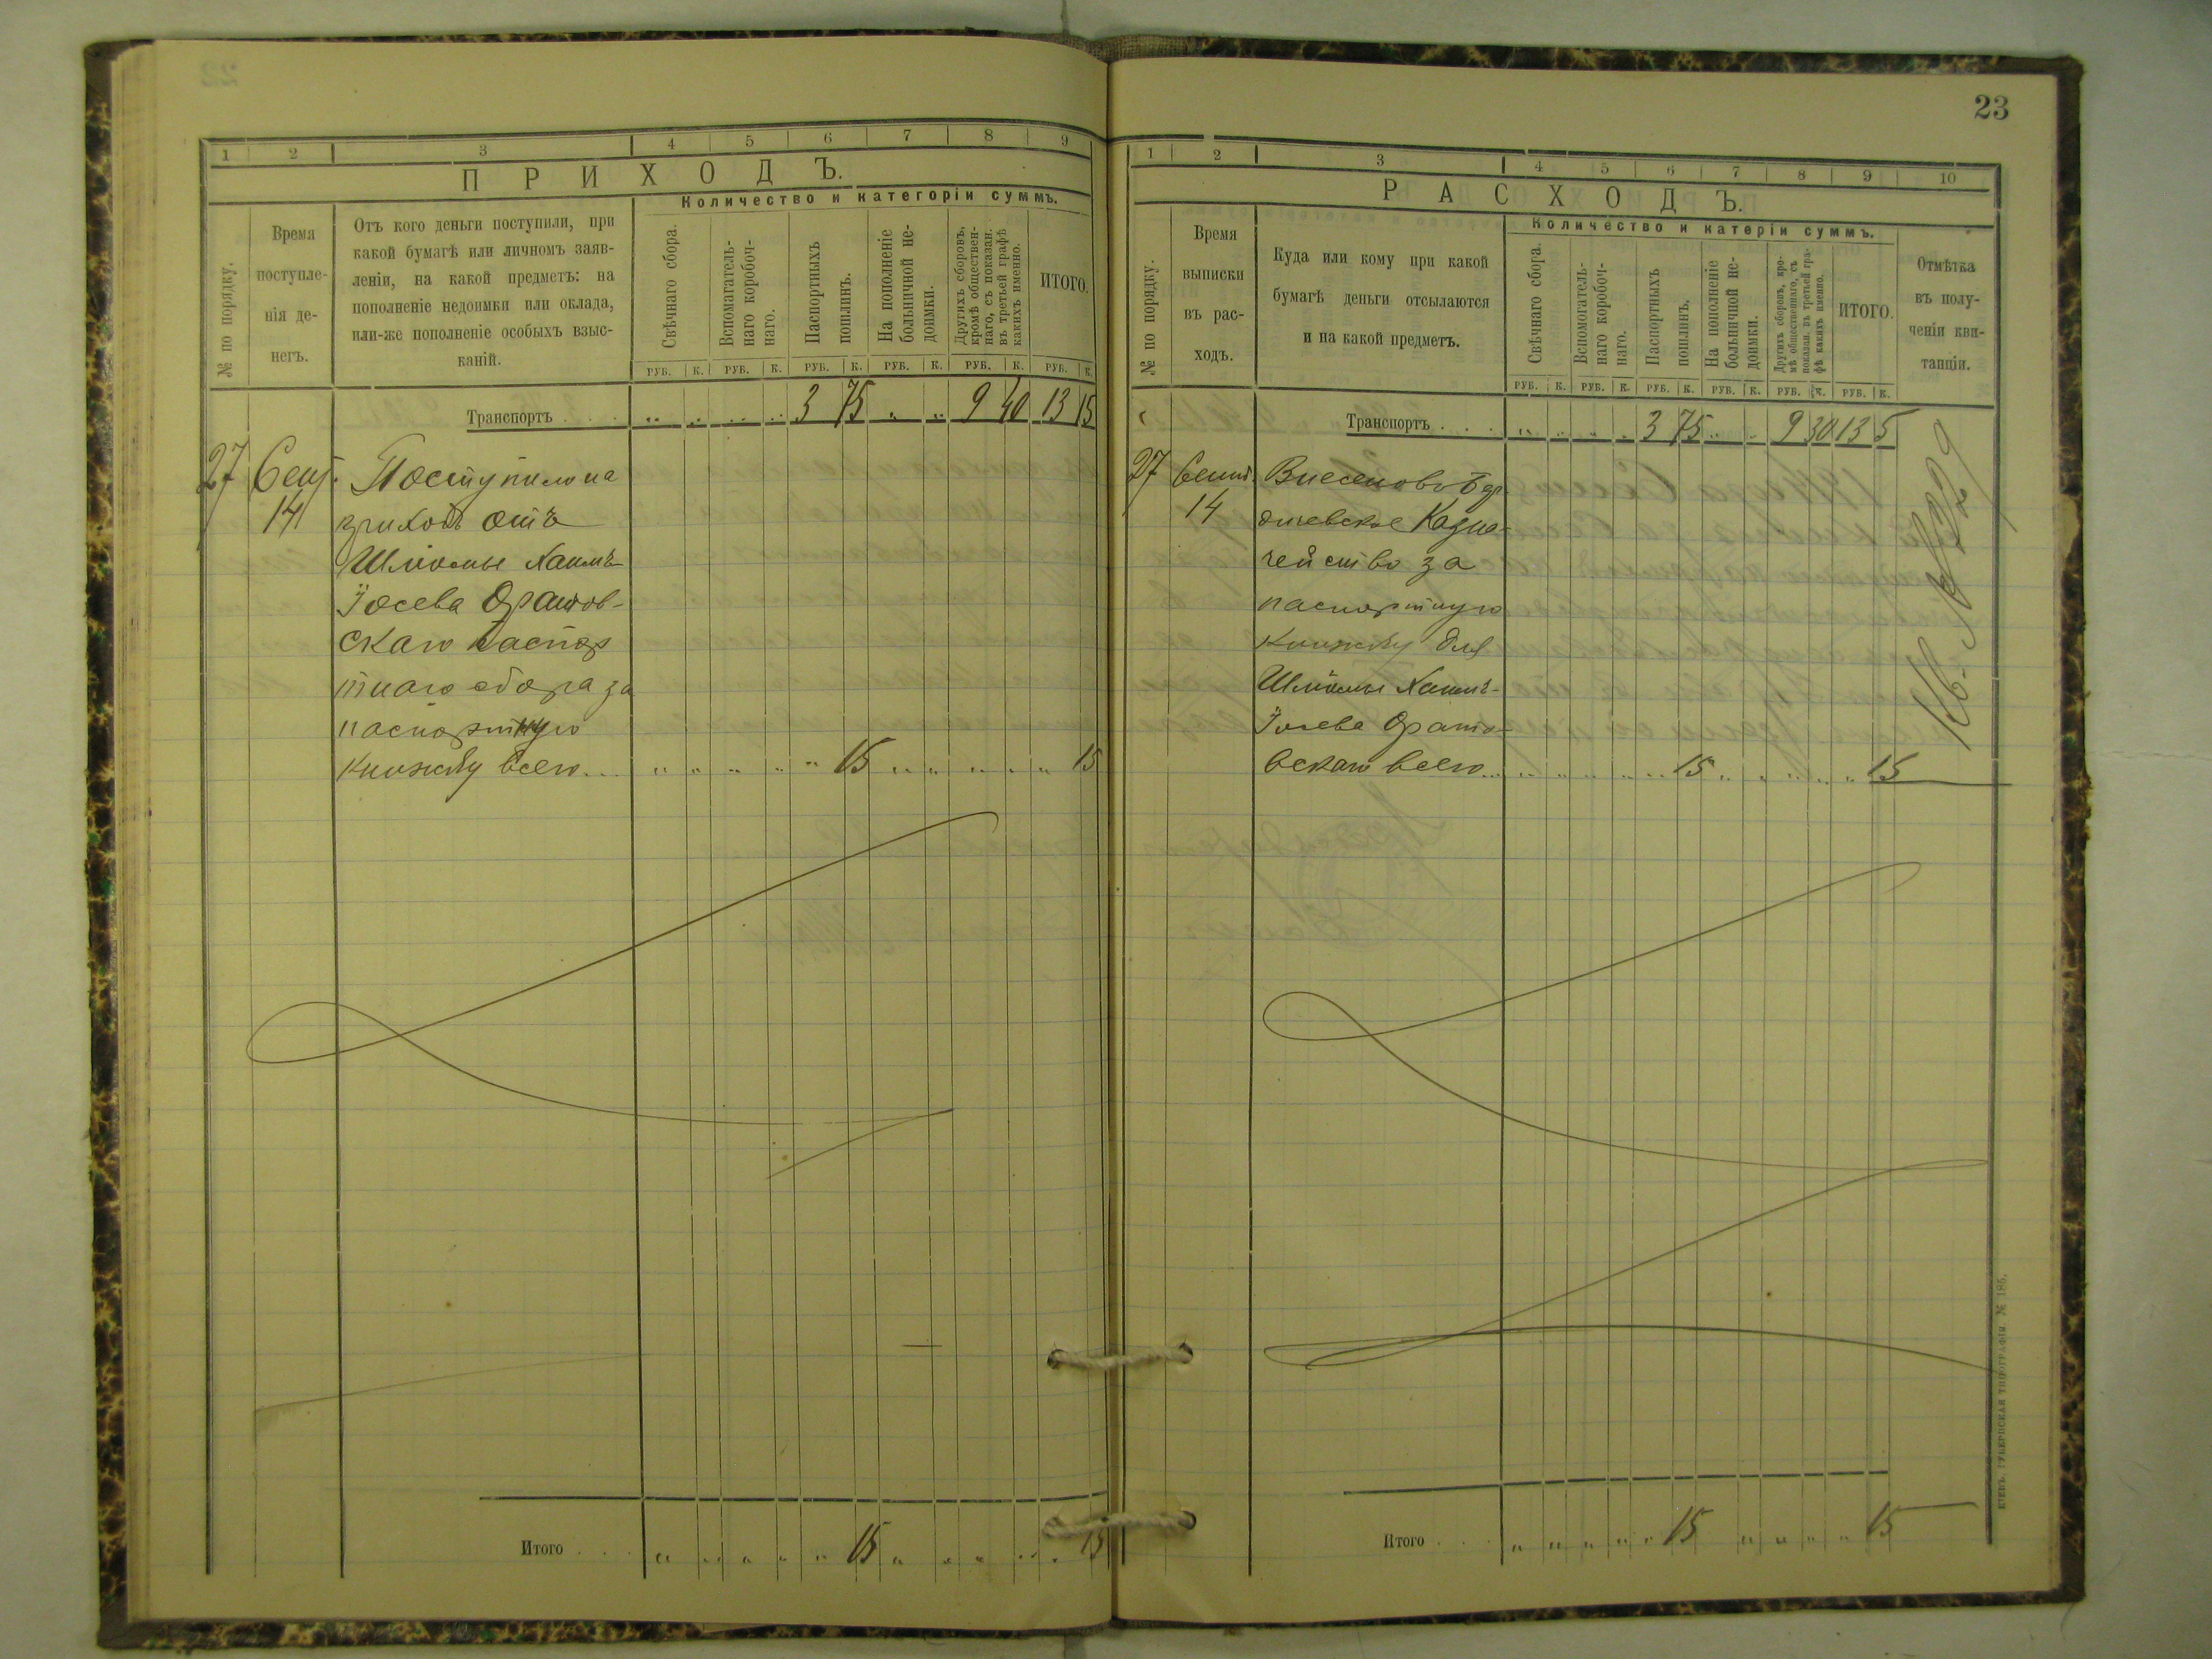 23
1 2 3 4 5 6 7 8 9
ПРИХОДЪ.
Количество и категоріи суммъ.
№ по порядку.
Время
поступле-
нія де-
негъ.
Отъ кого деньги поступили, при
какой бумагѣ или личномъ заяв-
леніи, на какой предметъ: на
пополненіе недоимки или оклада,
или-же пополненіе особыхъ взыс-
каній.
Свѣчнаго сбора.
Вспомагатель-
наго коробоч-
наго.
Паспортныхъ
пошлинъ.
На пополненіе
больничной не-
доимки.
Другихъ сборовъ,
кромѣ обществен-
наго, съ показан.
въ третьей графѣ
какихъ именно.
ИТОГО.
РУБ. К. РУБ. К. РУБ. К. РУБ. К. РУБ. К. РУБ. К.
Транспортъ . . . 3 75 9 40 13 15
27 Сент. Поступило на
14 приходъ отъ
Шліомы Хаимъ
Іосева Оратов-
скаго паспор
тнаго сбора за
паспортную
книжку всего 15 15
Итого . . . 15 15
1 2 3 4 5 6 7 8 9 10
РАСХОДЪ.
Количество и катеріи суммъ.
№ по порядку.
Время
выписки
въ рас-
ходъ.
Куда или кому при какой
бумагѣ деньги отсылаются
и на какой предметъ.
Свѣчнаго сбора.
Вспомогатель-
наго коробоч-
наго.
Паспортныхъ
пошлинъ.
На пополненіе
больничной не-
доимки.
Другихъ сборовъ, кро-
мѣ общественнаго, съ
показан. въ третьей гра-
фѣ какихъ именно.
ИТОГО.
Отмѣтка
въ полу-
ченіи кви-
танціи.
РУБ. К. РУБ. К. РУБ. К. РУБ. К. РУБ. К. РУБ. К.
Транспортъ . . . 3 75 9 30 13 5
27 Сент. Внесено во Бер
14 дичевское Казна-
чейство за
паспортную
книжку для
Шліомы Хаимъ-
Іосева Орато-
вскаго всего 15 15
Итого . . . 15 15
КІЕВЪ. ГУБЕРНСКАЯ ТИПОГРАФІЯ. № 185.